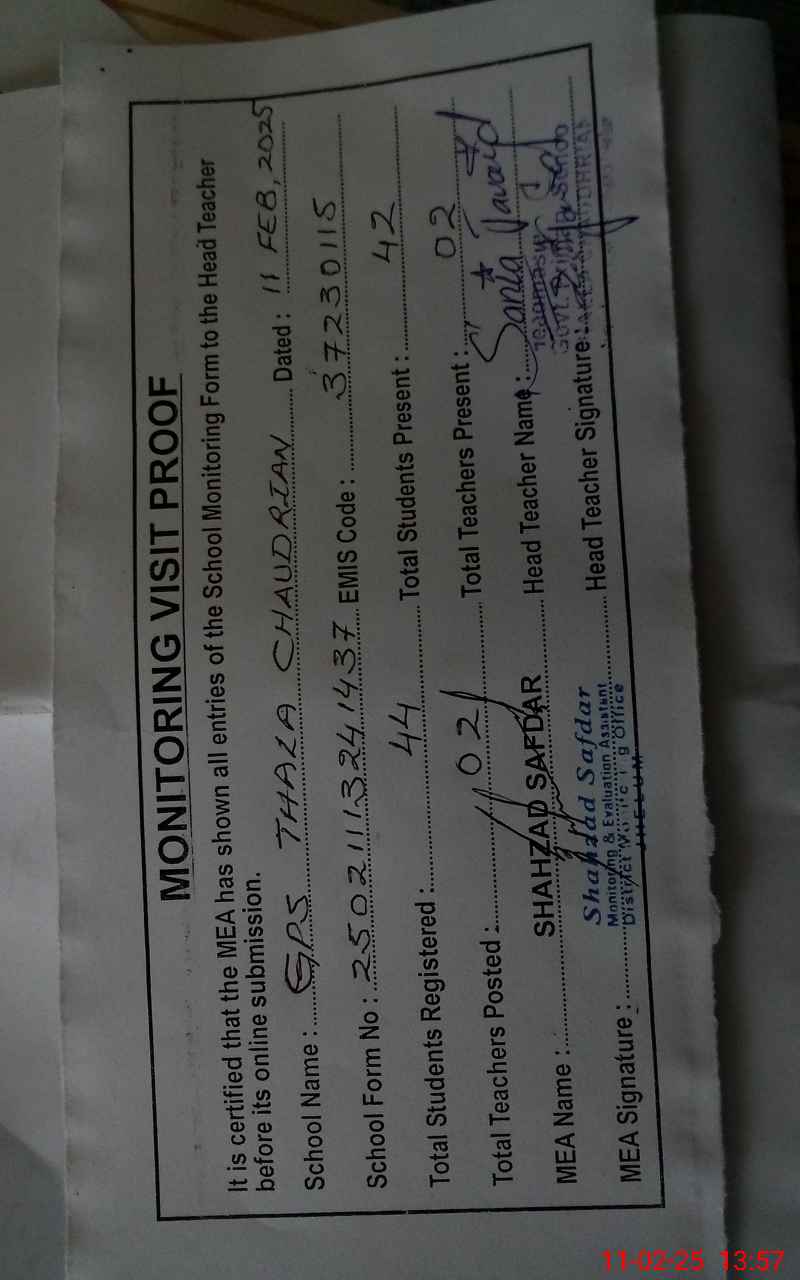 MONITORING VISIT PROOF
It is certified that the MEA has shown all entries of the School Monitoring Form to the Head Teacher
before its online submission.
School Name : GPS THALA CHAUDRIAN Dated : 11 FEB, 2025
School Form No : 25021113241437 EMIS Code : 37230115
Total Students Registered : 44 Total Students Present : 42
Total Teachers Posted : 02 Total Teachers Present : 02
MEA Name : SHAHZAD SAFDAR Head Teacher Name : Sania Javaid
Shahzad Safdar
Monitoring & Evaluation Assistant
District Monitoring Office
JHELUM
MEA Signature : Head Teacher Signature :
11-02-25 13:57